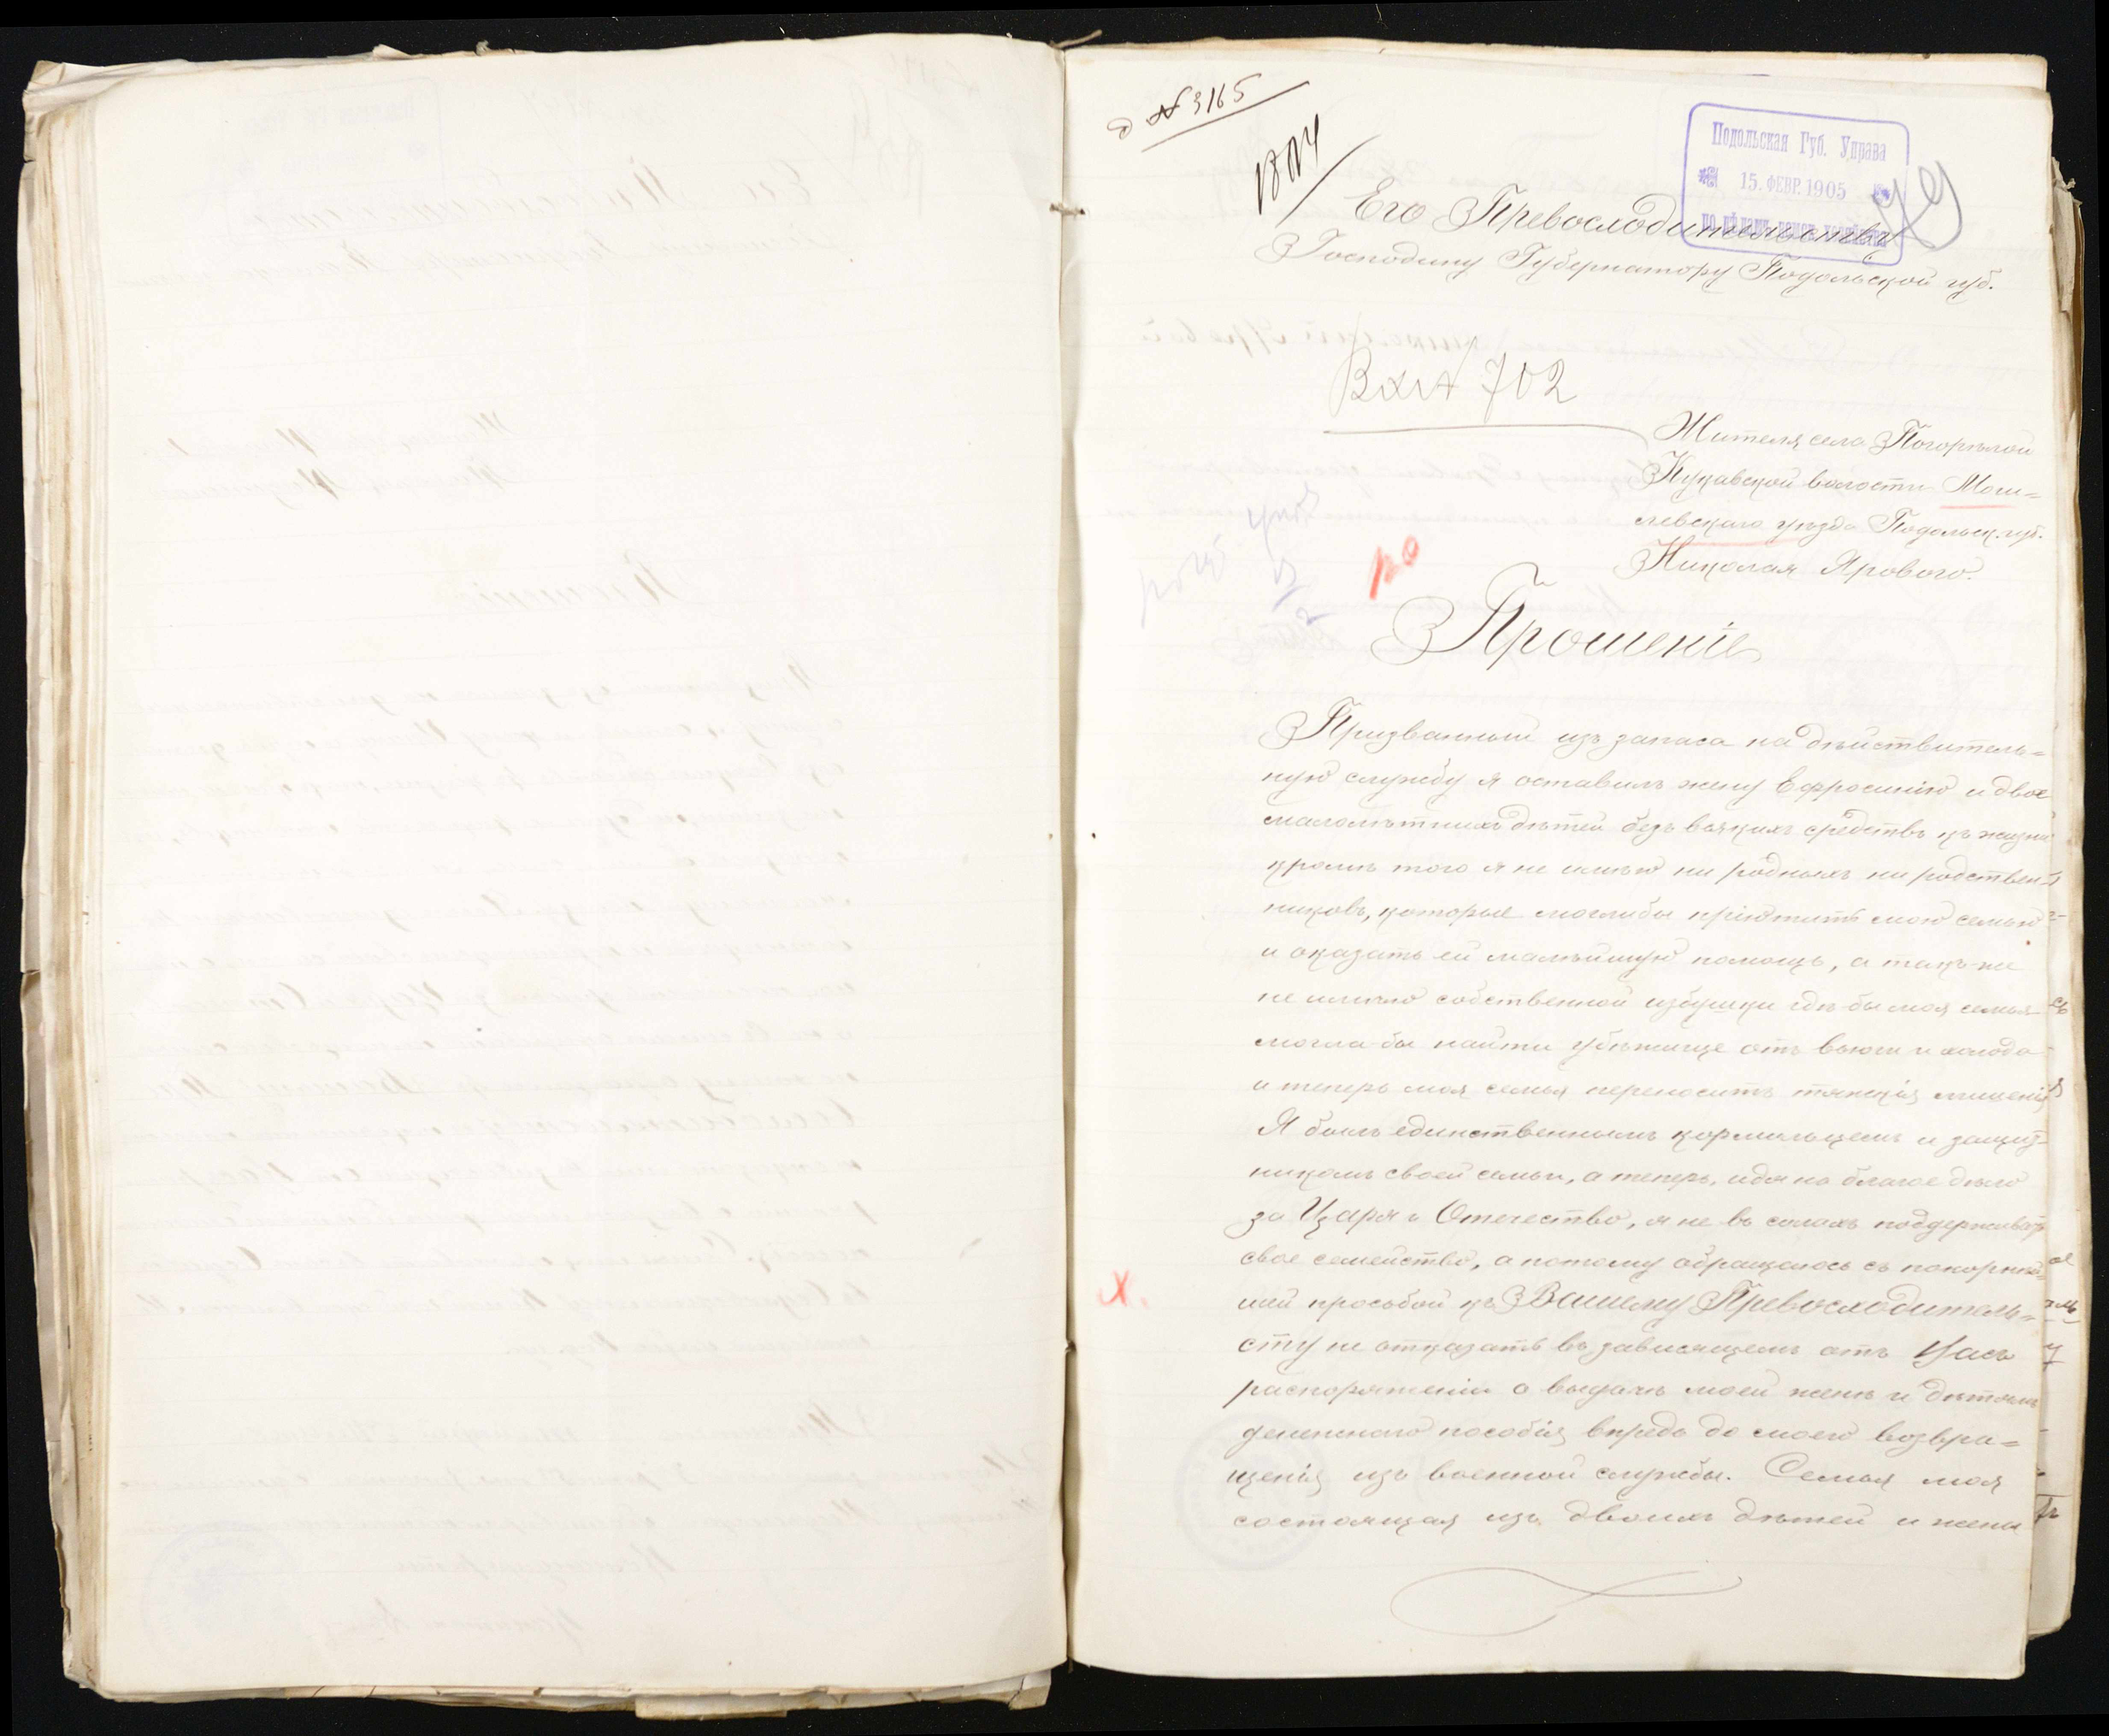 д № 3165
Подольская Губ. Управа
15. ФЕВР. 1905
по дѣламъ земск. хозяйства
99
Его Превосходительству
Господину Губернатору Подольской губ.
Вх № 702
Жителя села Погорѣлой
Кукавской волости Моги=
левскаго уѣзда Подольск. губ.
Николая Ярового.
Прошеніе
Призванный изъ запаса на дѣйствитель=
ную службу я оставилъ жену Ефросинію и двое
малолѣтнихъ дѣтей безъ всякихъ средствъ къ жизни
кромѣ того я не имѣю ни родныхъ ни родствен-
никовъ, которые моглибы пріютить мою семью
и оказать ей малѣйшую помощь, а такъ-же
не имѣю собственной избушки гдѣ-бы моя семья
могла-бы найти убѣжище отъ вьюги и холода
и теперь моя семья переноситъ тяжкія лишенія
Я былъ единственнымъ кормильцемъ и защит-
никомъ своей семьи, а теперь, идя на благое дѣло
за Царя и Отечество, я не въ силахъ поддерживать
свое семейство, а потому обращаюсь съ покорнѣй=
шей просьбой къ Вашему Превосходитель=
сту не отказать въ зависящемъ отъ Васъ
распоряженіи о выдачѣ моей женѣ и дѣтямъ
денежнаго пособія впредь до моего возвра=
щенія изъ военной службы. Семья моя
состоящая изъ двоихъ дѣтей и жены